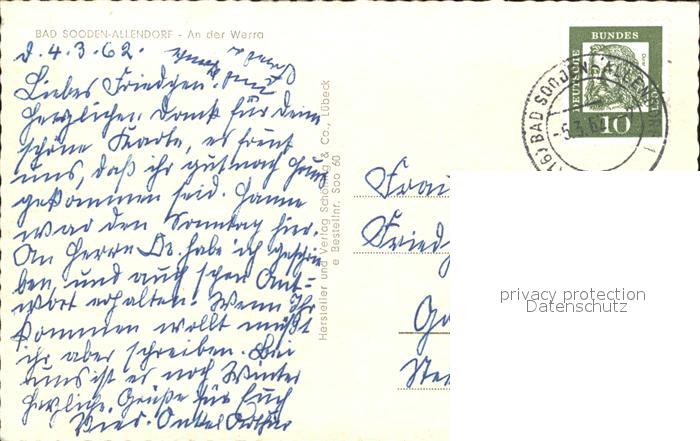 BAD SOODEN-ALLENDORF - An der Werra
d. 4.3.62.
Liebes Friedgen!
Herzlichen Dank für deine
schöne Karte, es freut
uns, daß ihr gut nach Haus
gekommen seid. Hanne
war den Sonntag hier.
An Herrn Dr. habe ich geschrie-
ben, und auch schon Ant-
wort erhalten. Wenn Ihr
kommen wollt müßt
ihr aber schreiben. Bei
uns ist es noch Winter
Herzliche Grüße für Euch
Onkel Arthur
Hersteller und Verlag Schöning & Co., Lübeck
Bestellnr. Soo 60
DEUTSCHE BUNDESPOST
10
(16) BAD SOODEN-ALLENDORF 1
-5.3.62
Frau
Fried
privacy protection
Datenschutz